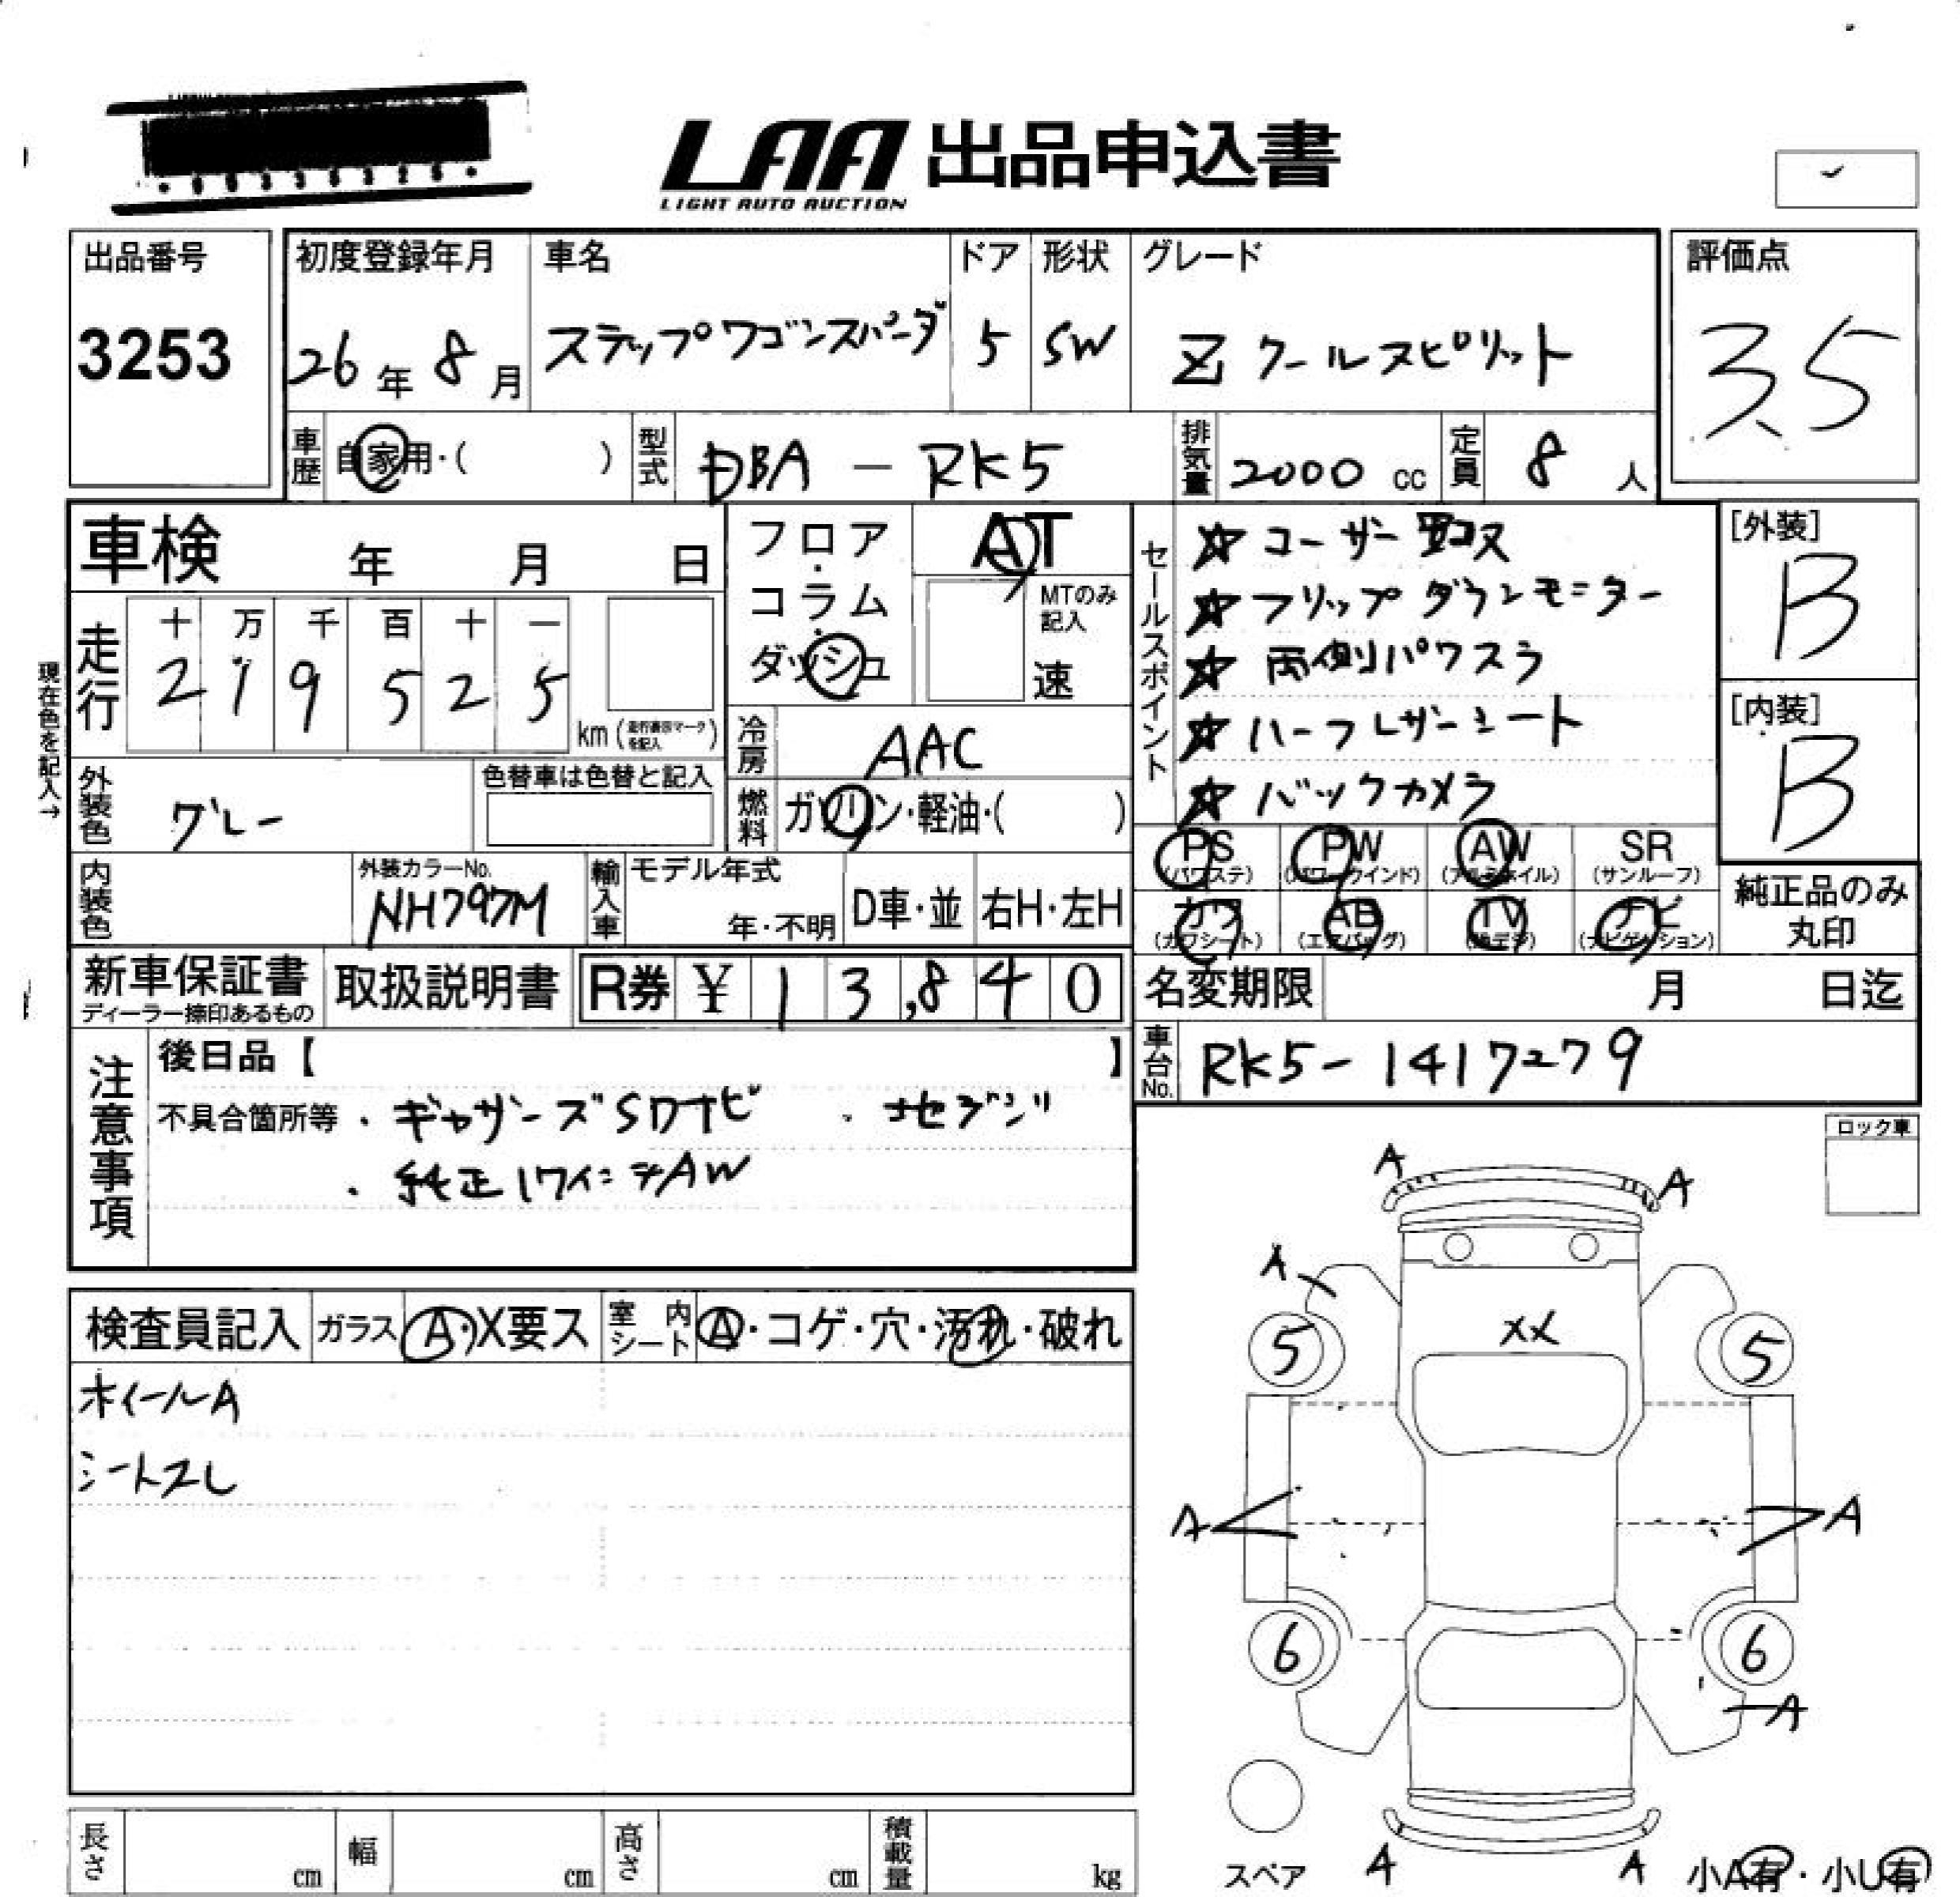 LAA 出品申込書
LIGHT AUTO AUCTION
出品番号
3253
初度登録年月
26年8月
車名
ステップワゴンスパーダ
ドア
5
形状
SW
グレード
Z クールスピリット
評価点
3.5
車歴
自家用・( )
型式
DBA - RK5
排気量
2000 cc
定員
8人
車検 年 月 日
走行
十 万 千 百 十 一
2 1 9 5 2 5
km(
を記入
)
現在色を記入→
外装色
グレー
色替車は色替と記入
内装色
外装カラーNo.
NH797M
フロア・
コラム・
ダッシュ
AT
MTのみ
記入
速
冷房
AAC
燃料
ガソリン・軽油・( )
輸入車
モデル年式
年・不明
D車・並
右H・左H
セールスポイント
☆ フリップダウンモニター
☆ 両側パワスラ
☆ ハーフレザーシート
☆ バックカメラ
[外装]
B
[内装]
B
PS
(パワステ)
PW
(パワーウインド)
AW
(アルミホイル)
SR
(サンルーフ)
カワ
(カワシート)
AB
(エアバッグ)
TV
(地デジ)
ナビ
(ナビゲーション)
純正品のみ
丸印
新車保証書
ディーラー捺印あるもの
取扱説明書
R券 ¥ 13,840
名変期限 月 日迄
車台No.
RK5-1417279
注意事項
後日品【 】
不具合箇所等 ・ギャザーズSDナビ ・地デジ
・純正17インチAW
ロック車
検査員記入
ガラス
A・X要ス
室内シート
A・コゲ・穴・汚れ・破れ
ホイールA
シートスレ
A A
A
XX
5 5
A A
6 6
A
スペア
A A
小A有・小U有
長さ cm
幅 cm
高さ cm
積載量 kg